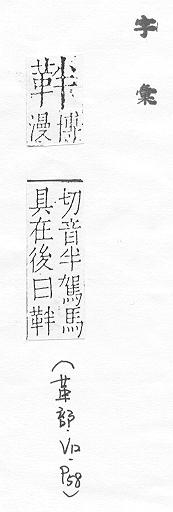 字彙
靽
博
漫
切音半駕馬
具在後曰靽
(革部-V12-P58)